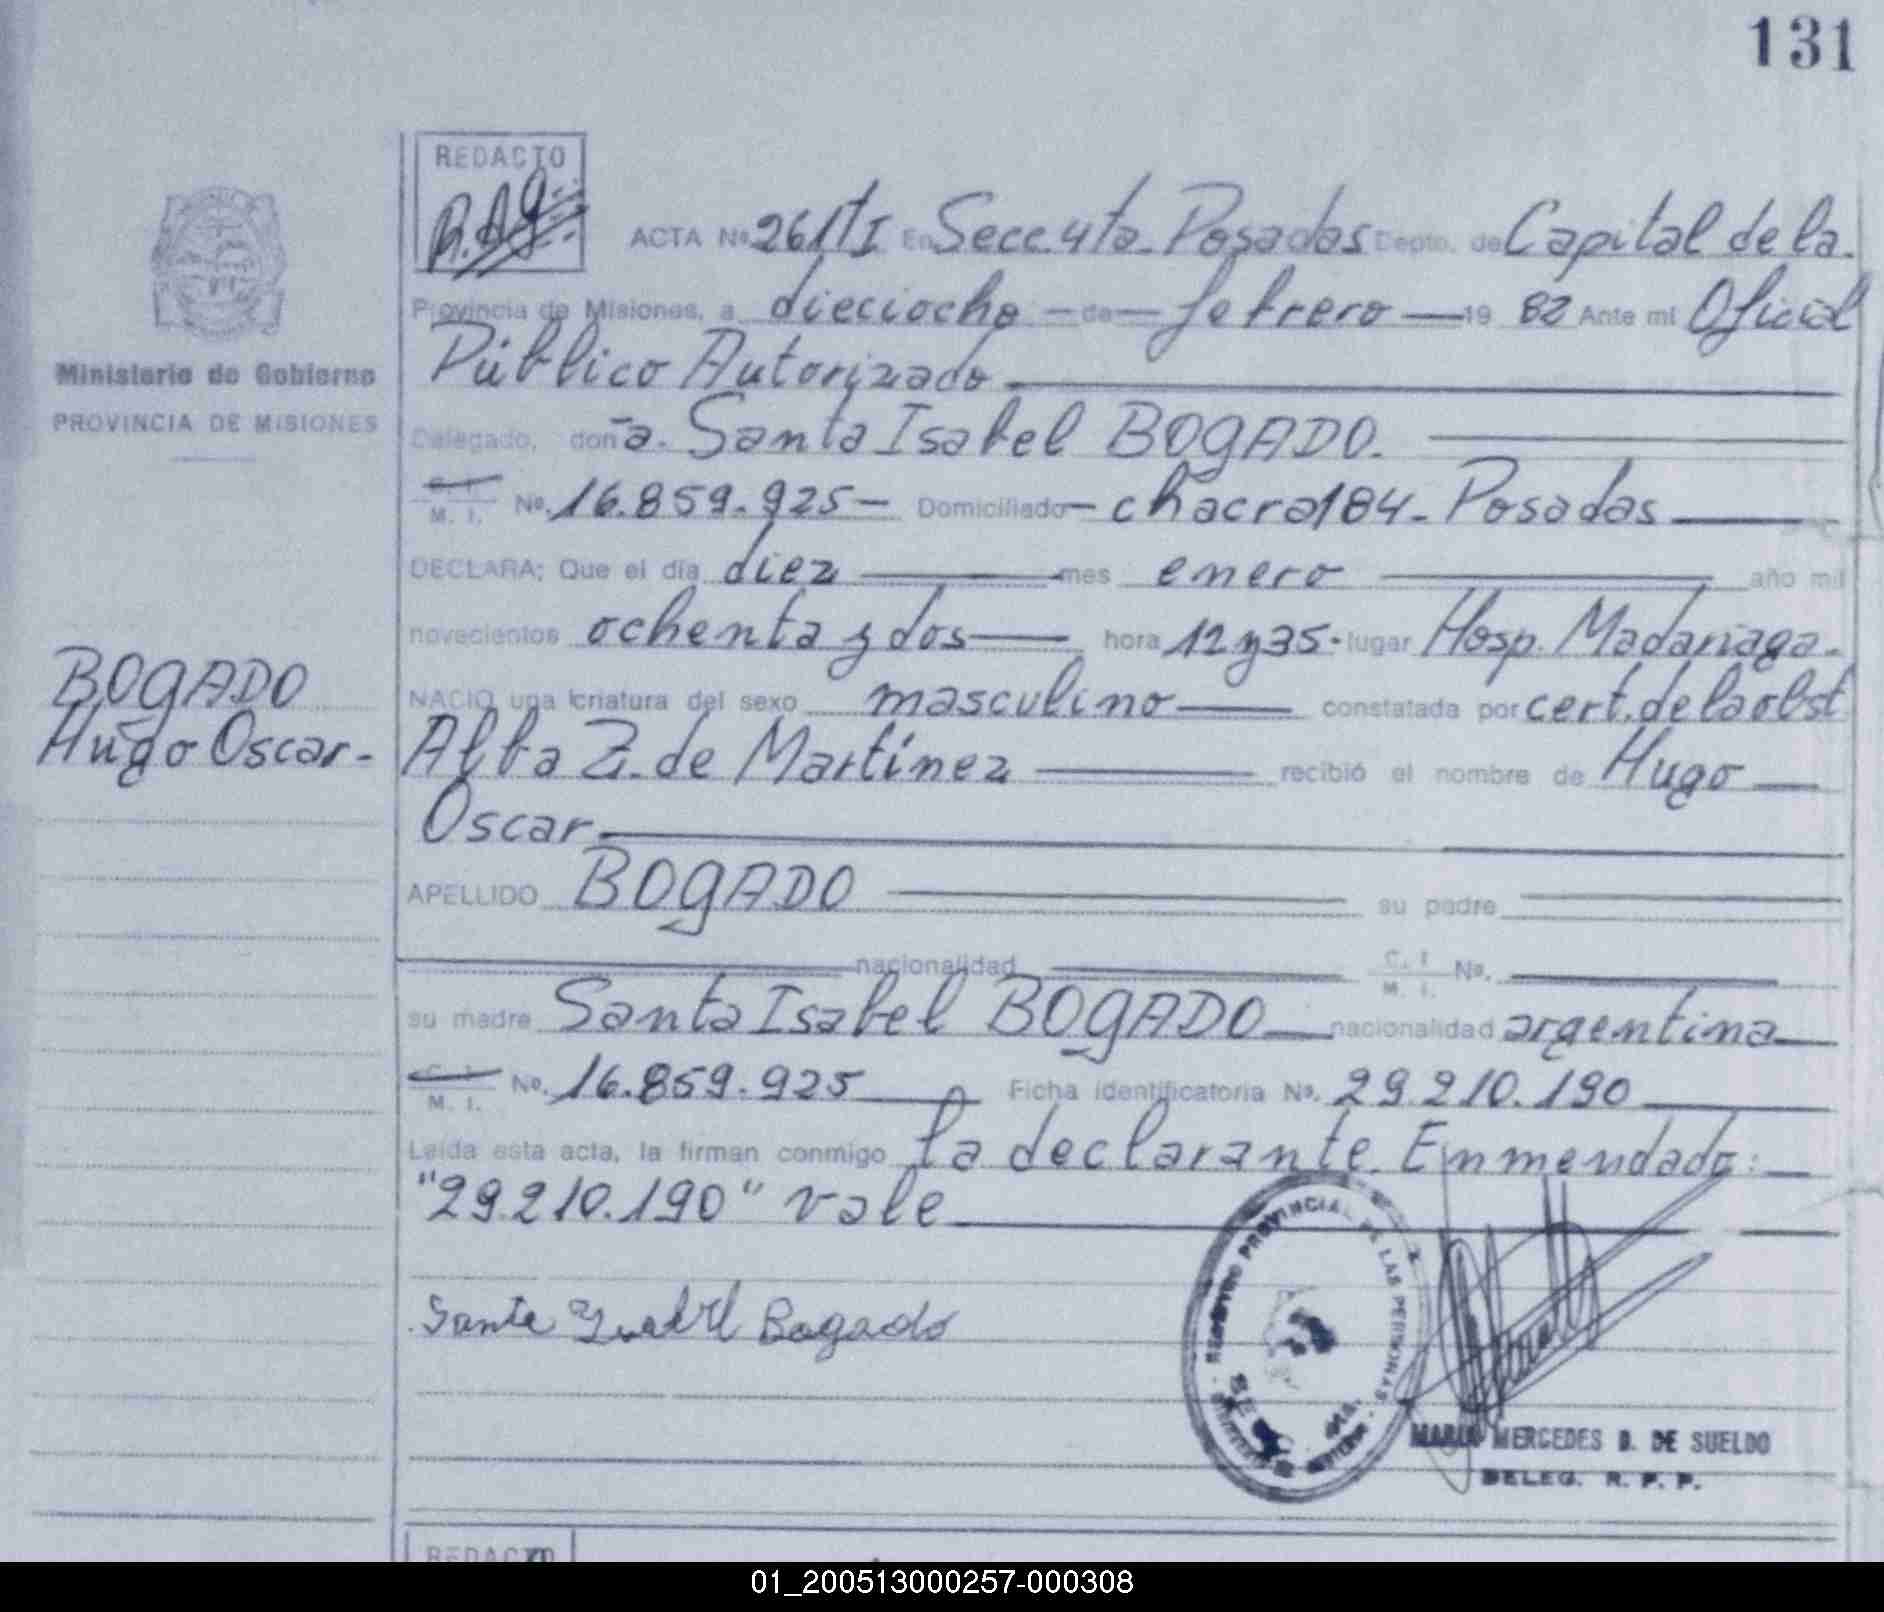 131
REDACTO
ACTA Nº 261 T I En Secc. 4ta. Posadas Depto. de Capital de la
Provincia de Misiones, a dieciocho de febrero 19 82 Ante mi Oficial
Público Autorizado
Ministerio de Gobierno
PROVINCIA DE MISIONES
Delegado, don -a. Santa Isabel BOGADO.
M. I. No. 16.859.925 - Domiciliado - chacra 184 - Posadas
DECLARA; Que el día diez mes enero año mil
novecientos ochenta y dos hora 12 y 35 - lugar Hosp. Madariaga.
BOGADO
Hugo Oscar -
NACIO una criatura del sexo masculino constatada por cert. de la obst
Alba Z. de Martínez recibió el nombre de Hugo
Oscar
APELLIDO BOGADO su padre
nacionalidad C. I. M. I. No.
su madre Santa Isabel BOGADO nacionalidad argentina
M. I. No. 16.859.925 Ficha identificatoria No. 29.210.190
Leída esta acta, la firman conmigo la declarante. Enmendado:
"29.210.190" vale
REGISTRO PROVINCIAL DE LAS PERSONAS
Santa Isabel Bogado
MARIA MERCEDES D. DE SUELDO
DELEG. R. P. P.
REDACTO
01_200513000257-000308